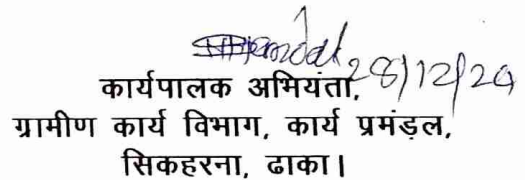 28/12/24
कार्यपालक अभियंता,
ग्रामीण कार्य विभाग, कार्य प्रमंडल,
सिकहरना, ढाका।